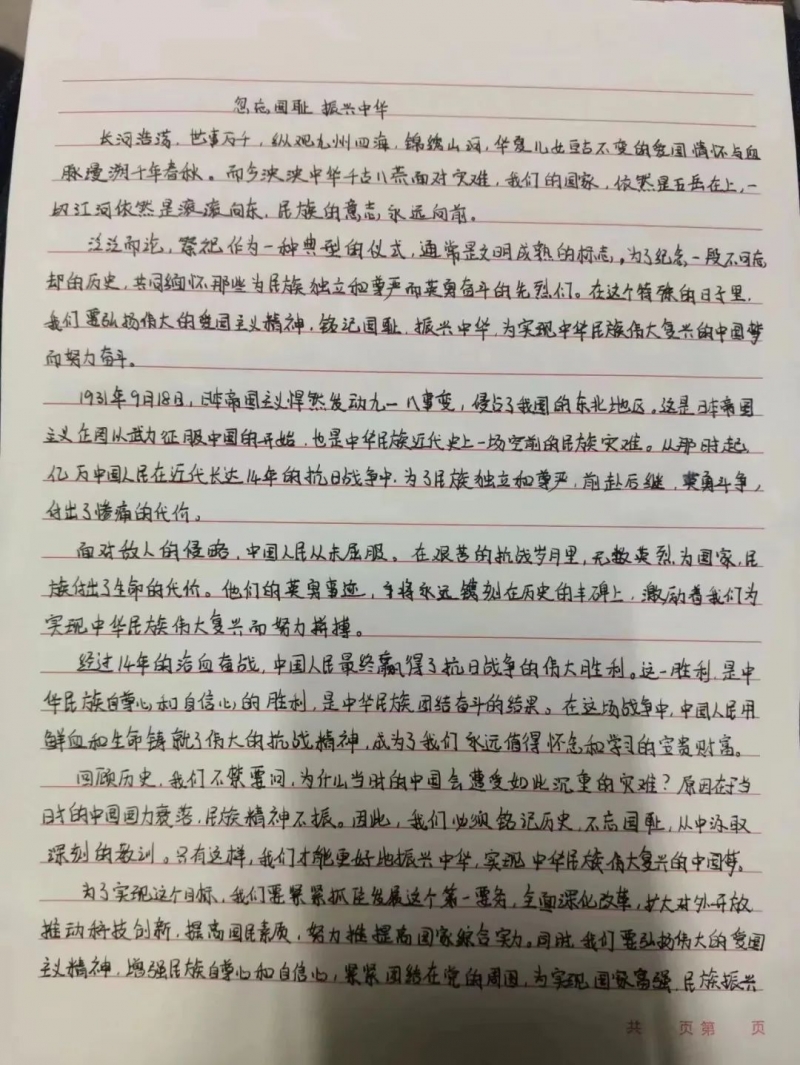 忽忘国耻 振兴中华
长河浩荡，世事万千，纵观九州四海，锦绣山河，华夏儿女亘古不变的爱国情怀与血
脉漫溯千年春秋。而今泱泱中华千古八荒面对灾难，我们的国家，依然是五岳在上，一
切江河依然是滚滚向东，民族的意志永远向前。
泛泛而论，祭祀作为一种典型的仪式，通常是文明成熟的标志。为了纪念一段不可忘
却的历史，共同缅怀那些为民族独立和尊严而英勇奋斗的先烈们。在这个特殊的日子里，
我们要弘扬伟大的爱国主义精神，铭记国耻，振兴中华，为实现中华民族伟大复兴的中国梦
而努力奋斗。
1931年9月18日，日本帝国主义悍然发动九一八事变，侵占了我国的东北地区。这是日本帝国
主义企图以武力征服中国的开始，也是中华民族近代史上一场空前的民族灾难。从那时起，
亿万中国人民在近代长达14年的抗日战争中，为了民族独立和尊严，前赴后继，英勇斗争，
付出了惨痛的代价。
面对敌人的侵略，中国人民从未屈服。在艰苦的抗战岁月里，无数英烈为国家，民
族付出了生命的代价。他们的英勇事迹，将永远镌刻在历史的丰碑上，激励着我们为
实现中华民族伟大复兴而努力拼搏。
经过14年的浴血奋战，中国人民最终赢得了抗日战争的伟大胜利。这一胜利，是中
华民族自尊心和自信心的胜利，是中华民族团结奋斗的结果。在这场战争中，中国人民用
鲜血和生命铸就了伟大的抗战精神，成为了我们永远值得怀念和学习的宝贵财富。
回顾历史，我们不禁要问，为什么当时的中国会遭受如此沉重的灾难？原因在于当
时的中国国力衰落，民族精神不振。因此，我们必须铭记历史，不忘国耻，从中汲取
深刻的教训。只有这样，我们才能更好地振兴中华，实现中华民族伟大复兴的中国梦。
为了实现这个目标，我们要紧紧抓住发展这个第一要务，全面深化改革，扩大对外开放
推动科技创新，提高国民素质，努力推提高国家综合实力。同时，我们要弘扬伟大的爱国
主义精神，增强民族自尊心和自信心，紧紧团结在党的周围，为实现国家富强，民族振兴
共 页 第 页